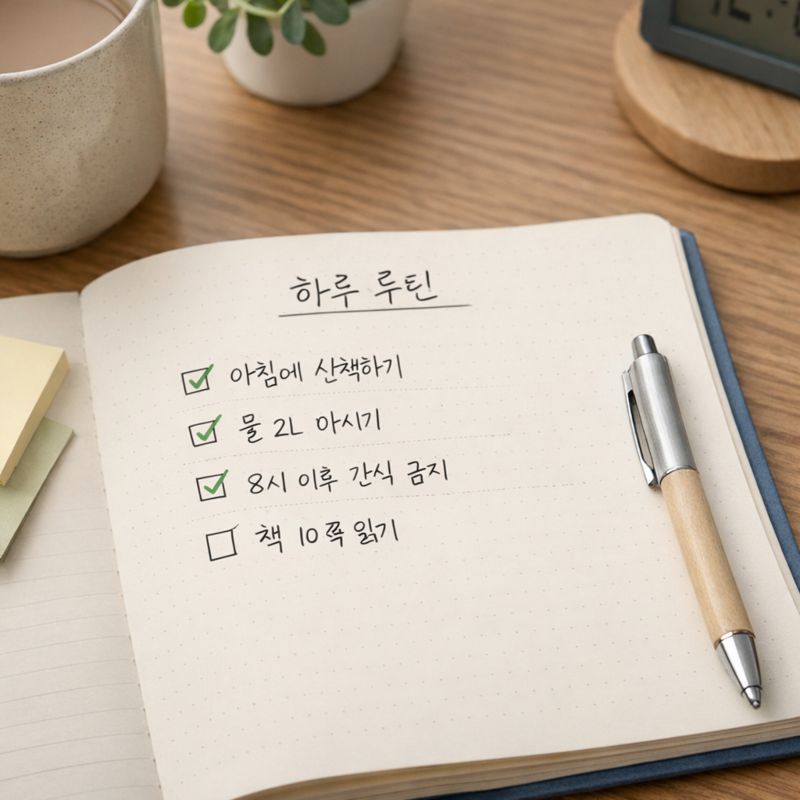 하루 루틴
아침에 산책하기
물 2L 마시기
8시 이후 간식 금지
책 10쪽 읽기